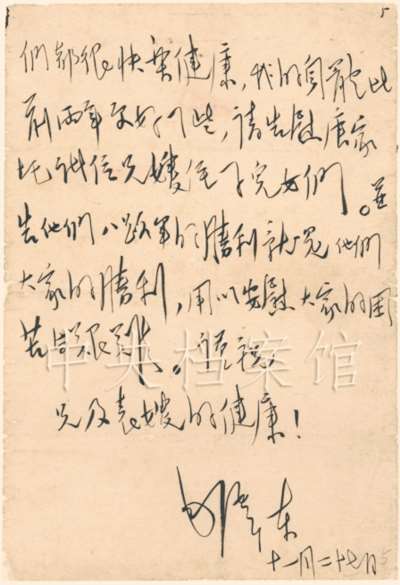 5
們都很快樂健康，我的身體比
前兩年更好了些，請告慰唐家
圫諸位兄嫂侄子兒女們。並
告他們八路軍的勝利就是他們
大家的勝利，用以安慰大家的困
苦與艱難。謹祝
兄及表嫂的健康！
毛澤東
十一月二十七日
5
中央档案馆